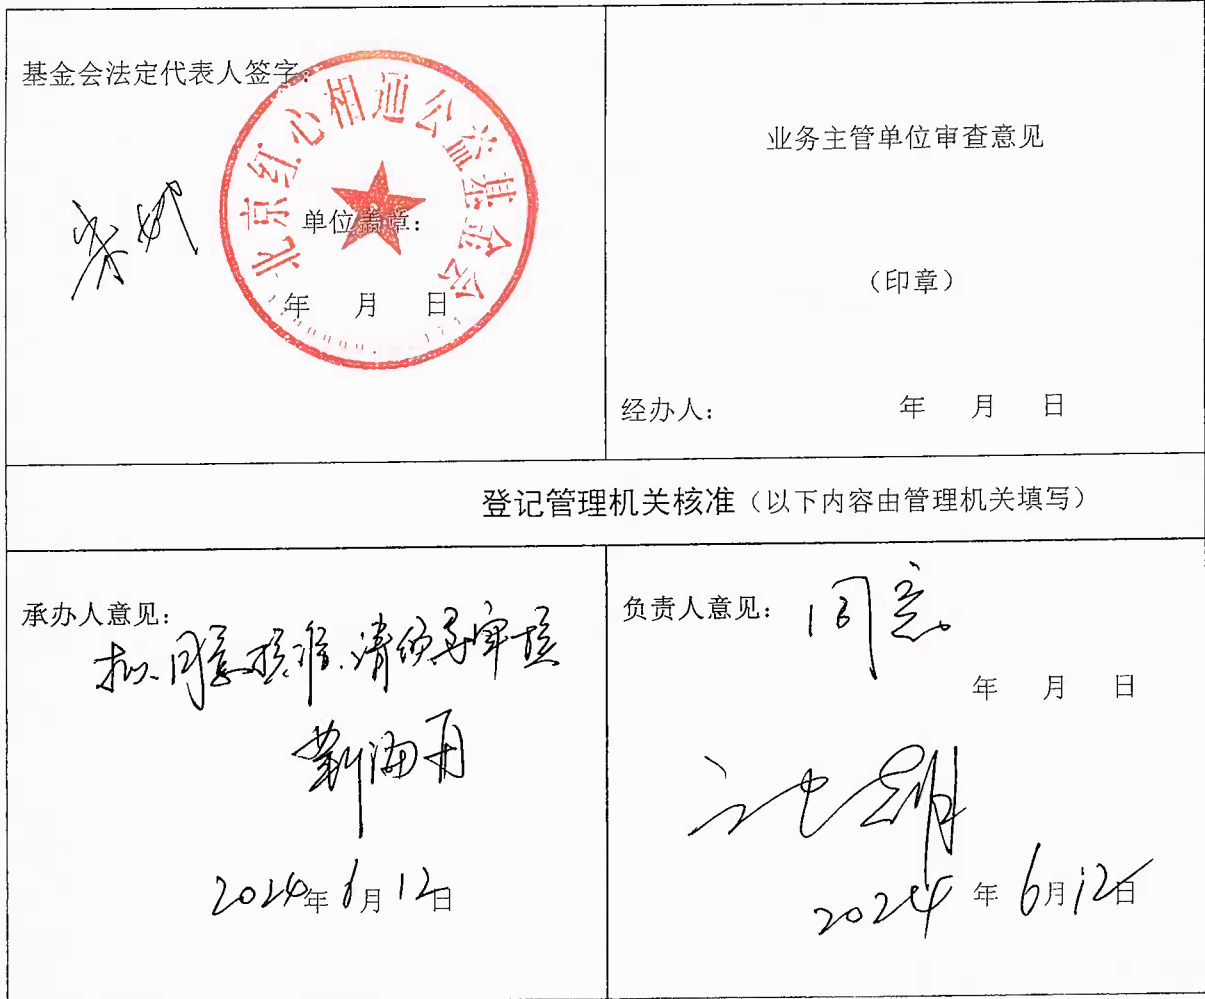 基金会法定代表人签字：
北京红心相通公益基金会
单位盖章：
年 月 日
业务主管单位审查意见
（印章）
经办人： 年 月 日
登记管理机关核准（以下内容由管理机关填写）
承办人意见：
拟同意核准，请领导审核
2024年6月12日
负责人意见： 同意
年 月 日
2024年6月12日